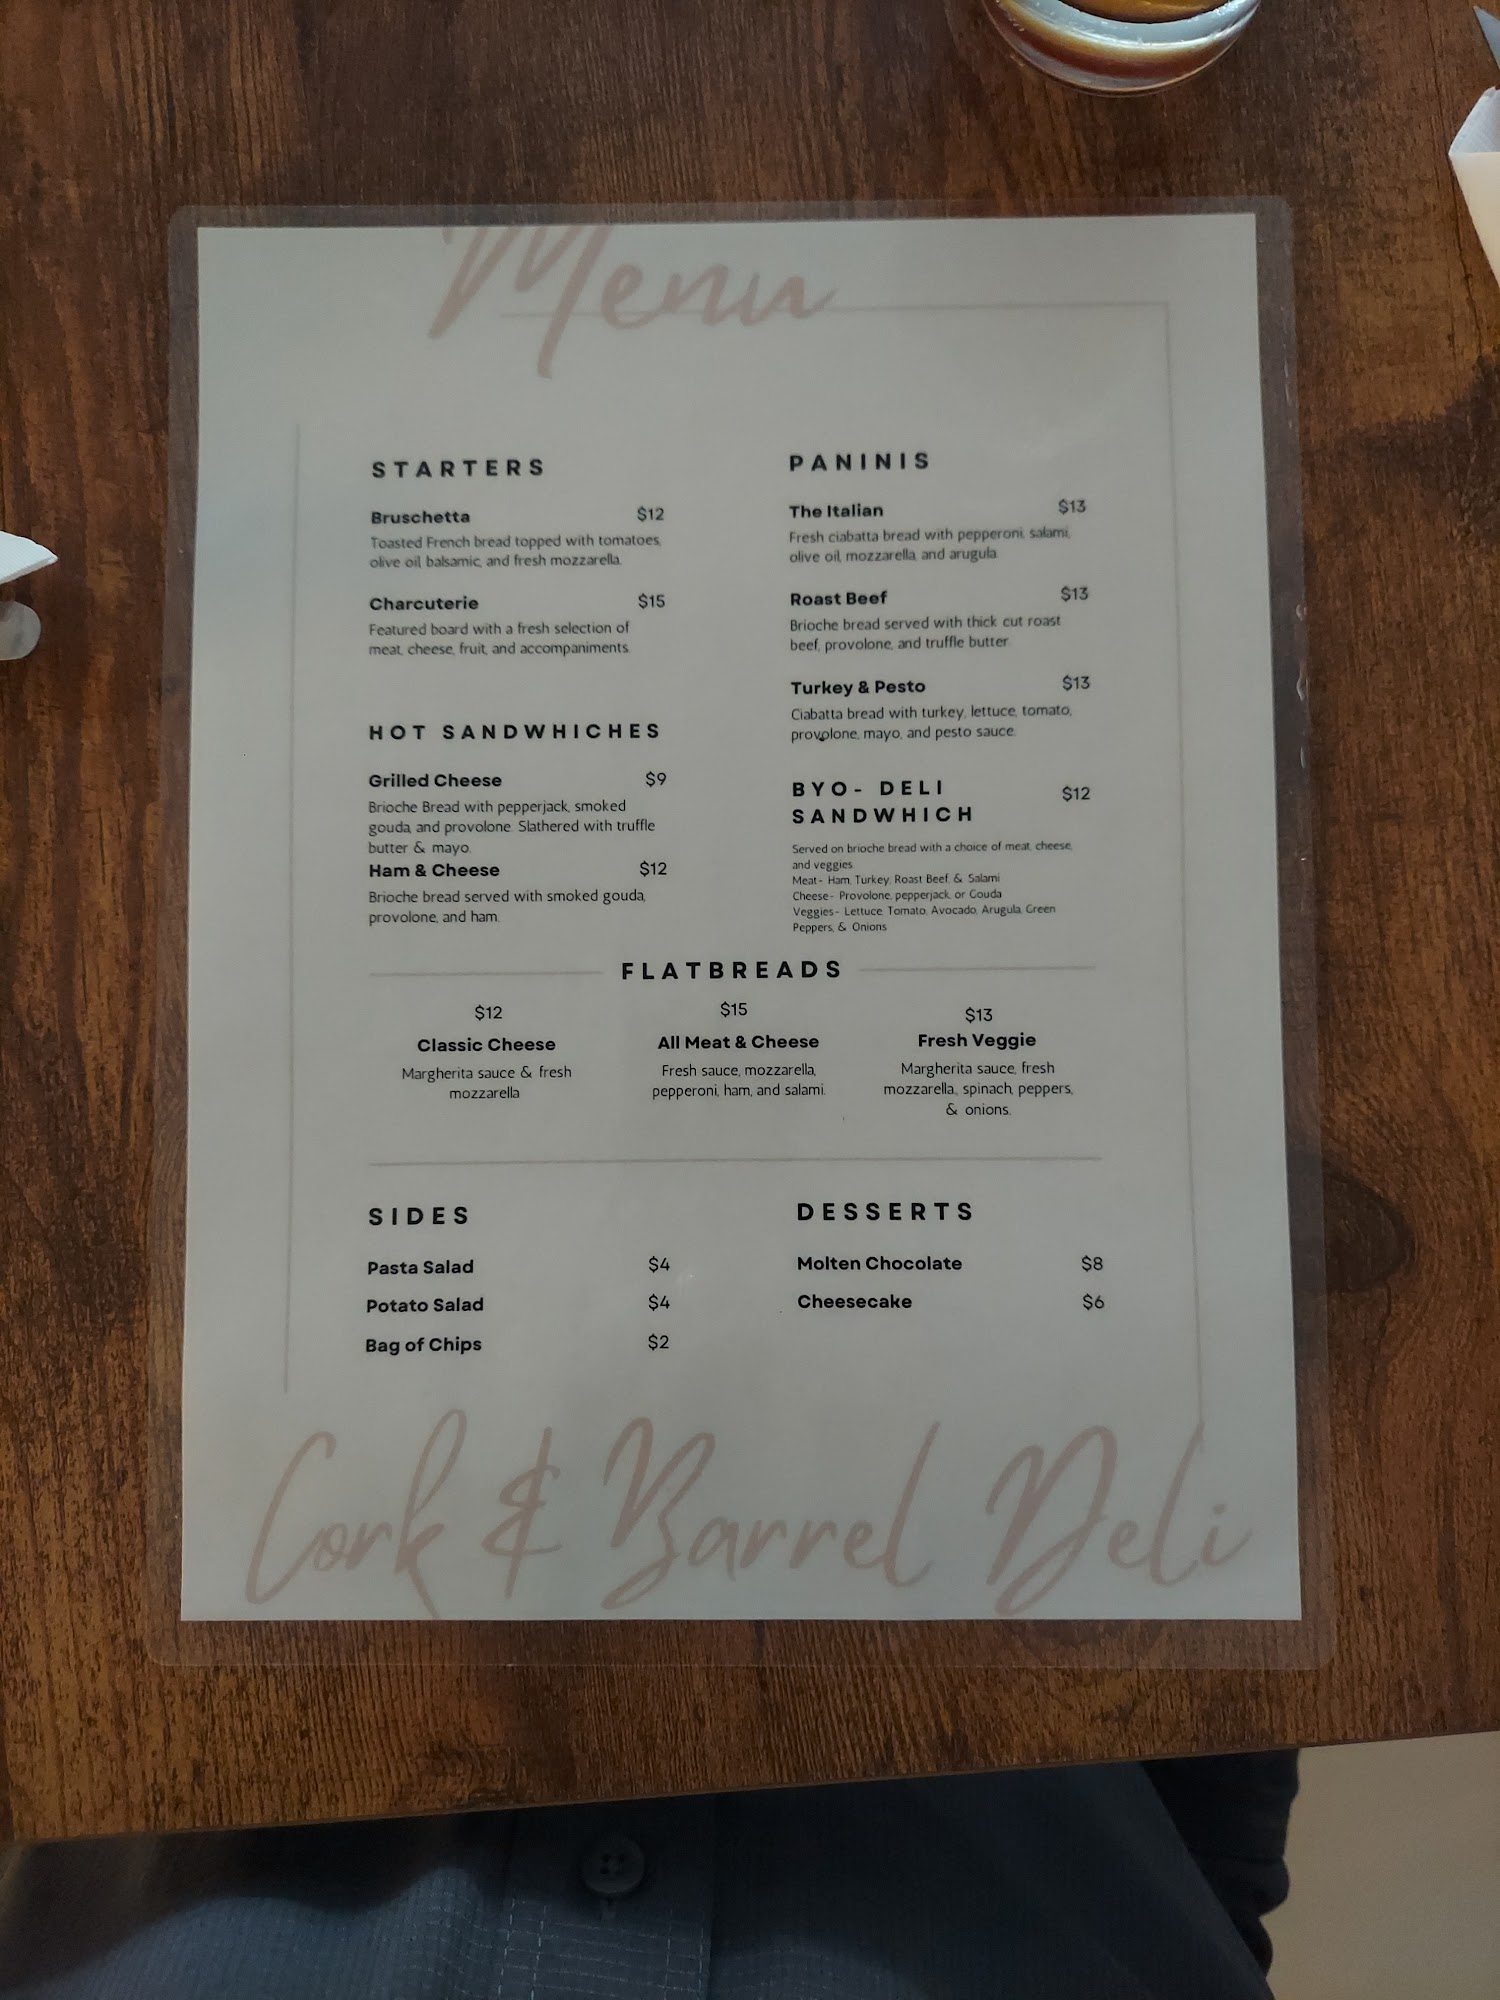 Menu
STARTERS
Bruschetta $12
Toasted French bread topped with tomatoes,
olive oil, balsamic, and fresh mozzarella.
Charcuterie $15
Featured board with a fresh selection of
meat, cheese, fruit, and accompaniments.
HOT SANDWHICHES
Grilled Cheese $9
Brioche Bread with pepperjack, smoked
gouda, and provolone. Slathered with truffle
butter & mayo.
Ham & Cheese $12
Brioche bread served with smoked gouda,
provolone, and ham.
PANINIS
The Italian $13
Fresh ciabatta bread with pepperoni, salami,
olive oil, mozzarella, and arugula.
Roast Beef $13
Brioche bread served with thick cut roast
beef, provolone, and truffle butter.
Turkey & Pesto $13
Ciabatta bread with turkey, lettuce, tomato,
provolone, mayo, and pesto sauce.
BYO- DELI $12
SANDWHICH
Served on brioche bread with a choice of meat, cheese,
and veggies.
Meat- Ham, Turkey, Roast Beef, & Salami
Cheese- Provolone, pepperjack, or Gouda
Veggies- Lettuce, Tomato, Avocado, Arugula, Green
Peppers, & Onions
FLATBREADS
$12
Classic Cheese
Margherita sauce & fresh
mozzarella
$15
All Meat & Cheese
Fresh sauce, mozzarella,
pepperoni, ham, and salami.
$13
Fresh Veggie
Margherita sauce, fresh
mozzarella, spinach, peppers,
& onions.
SIDES
Pasta Salad $4
Potato Salad $4
Bag of Chips $2
DESSERTS
Molten Chocolate $8
Cheesecake $6
Cork & Barrel Deli